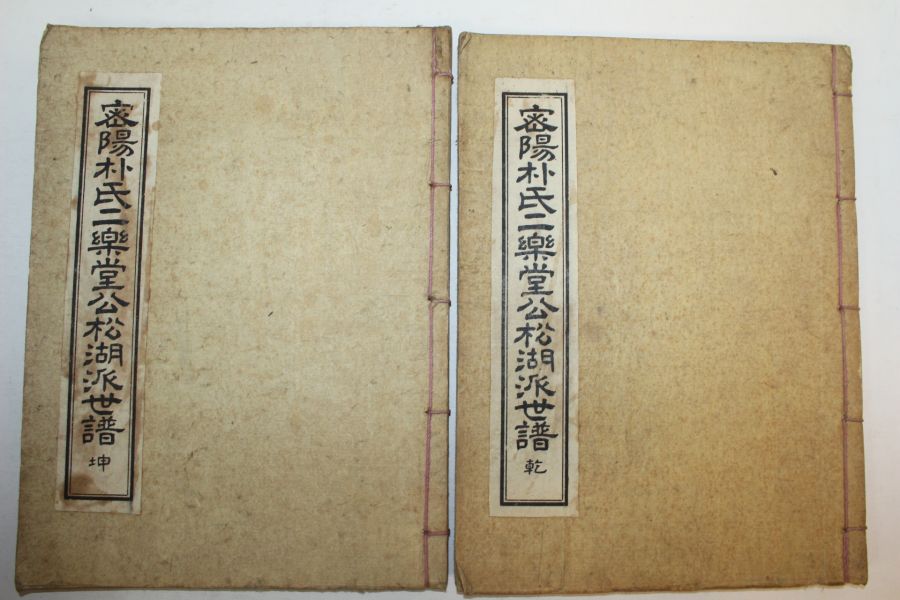 密陽朴氏二樂堂公松湖派世譜
乾
密陽朴氏二樂堂公松湖派世譜
坤